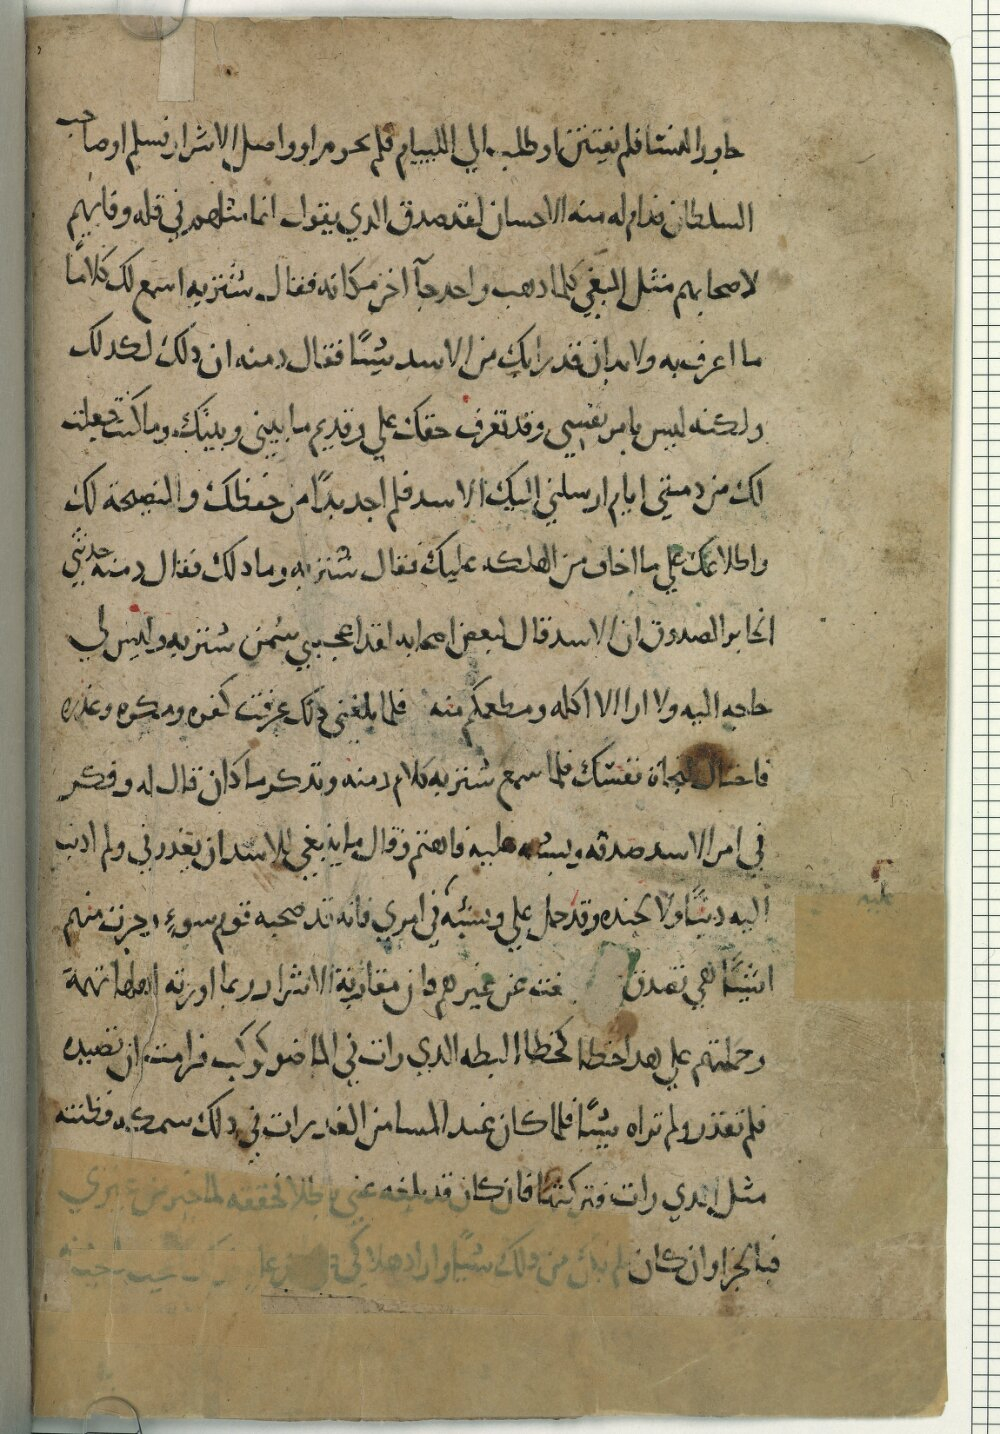 جاور النسا فلم يفتتن او طلب الي اللييام فلم يحرم او واصل الاشرار فسلم او صاحب
السلطان فدام له منه الاحسان لقد صدق الدي يقول انما مثلهم في قله وفايهم
لاصحابهم مثل البغي كلما ادهب واحد جآ اخر مكانه فقال شنزبه اسمع لك كلامًا
ما اعرف به ولا بد ان قد رابك من الاسد شيئًا فقال دمنه ان ذلك لكدلك
ولكنه ليس بامر نفسي وقد تعرف حقك علي وقديم ما بيني وبينك وما كنت جعلت
لك من دمتي ايام ارسلني اليك الاسد فلم اجد بدًا من حفظك والنصيحة لك
واطلاعك علي ما اخاف من الهلكه عليك فقال شنزبه وما دلك فقال دمنه حدثني
الخابر الصدوق ان الاسد قال لبعض اصحابه لقد اعجبني سُمن شنزبه وليس لي
حاجه اليه ولا ارا الا اكله ومطعمكم منه فلما بلغني دلك عرفت كفره ومكره وغدره
فاحتال لنجاة نفسك فلما سمع شنزبه كلام دمنه وتدكر ما كان قال له وفكر
في امر الاسد صدقه ويشبه عليه فاهتم وقال ما ينبغي للاسد ان يغدر بي ولم ادنب
اليه دنبًا ولا لجنده وقد حمل علي وشبه في امري فانه قد صحبه قوم سوءٍ وجرب منهم
اشيًا هي تصدق عنده عن غيرهم وان مقارنة الاشرار ربما اورثه اهلها تهمة
وحملتهم علي هدا خطا كخطا البطه الدي رات في الما ضو كوكب فرامت ان تصيده
فلم تقدر ولم تراه شيئًا فلما كان عند المسا من الغد رات في دلك سمكه فظنته
مثل الدي رات فتركتها فان كان قد بلغه عني باطلا فحققه لما جرب من غيري
فبالجزا وان كان لم يكن من دلك شيئًا واراد هلاكي